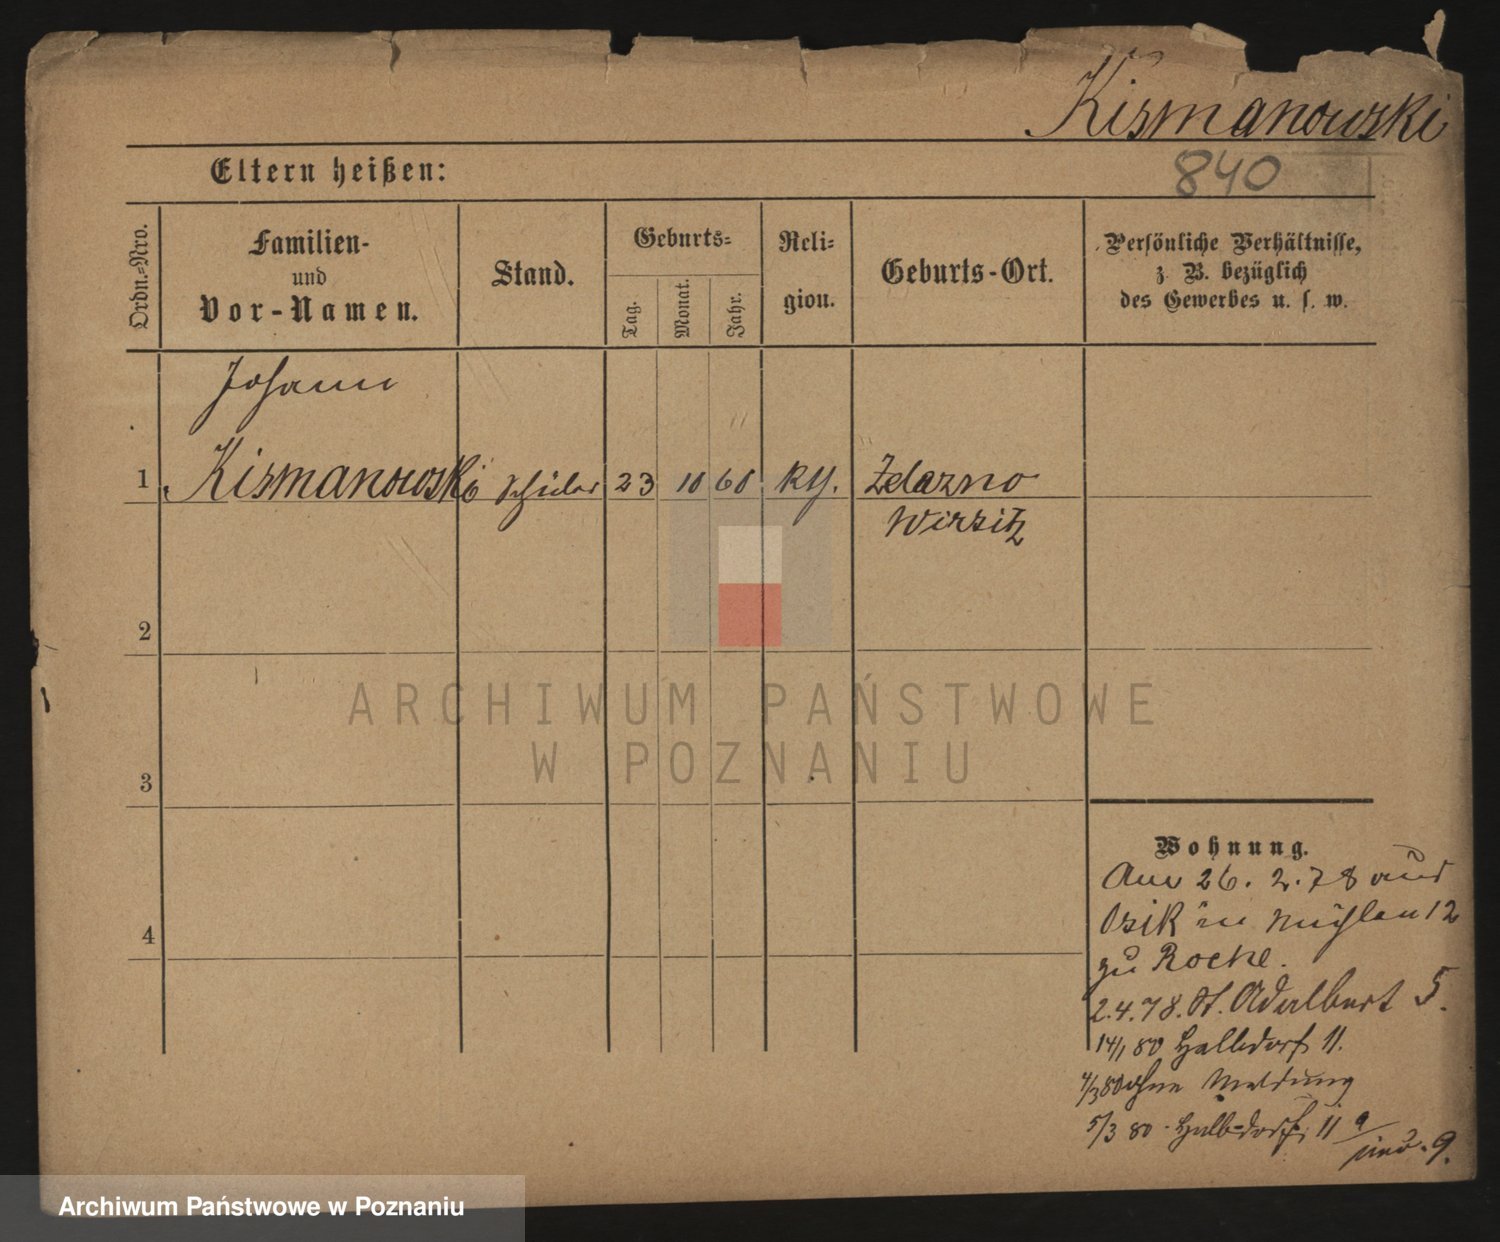 Kismanowski
840
Eltern heißen:
Ordn.=Nro.
Familien-
und
Vor-Namen.
Stand.
Geburts=
Tag.
Monat.
Jahr.
Reli=
gion.
Geburts-Ort.
Persönliche Verhältnisse,
z. B. bezüglich
des Gewerbes u. s. w.
Johann
1 Kismanowski Schüler 23 10 60 kth. Zelazno
Wirsitz
2
ARCHIWUM PAŃSTWOWE
W POZNANIU
3
Wohnung.
Am 26. 2. 78 aus
in Mühlen 12
zu Rocke.
4
2.4.78. St. Adalbert 5.
14/1 80 Halbdorf 11.
4/3 80 ohne Meldung
5/3 80 Halbdorf 11
9.
Archiwum Państwowe w Poznaniu